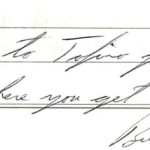 to Tofino y
here you get
Bu